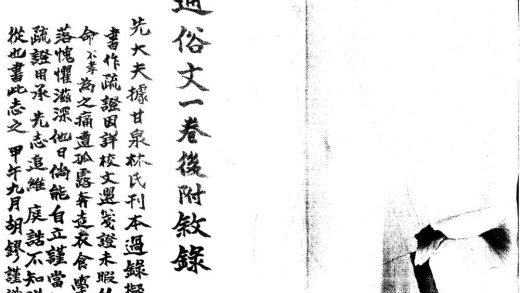 通俗文一卷後附敘錄
先大夫據甘泉林氏刊本過錄擬
書作疏證因詳校文選箋證未暇
命不孝為之痛遭孤露奔走衣食學
落愧懼滋深他日倘能自立謹當
疏證用承先志追維庭誥不知
從也書此志之 甲午九月胡鏐謹